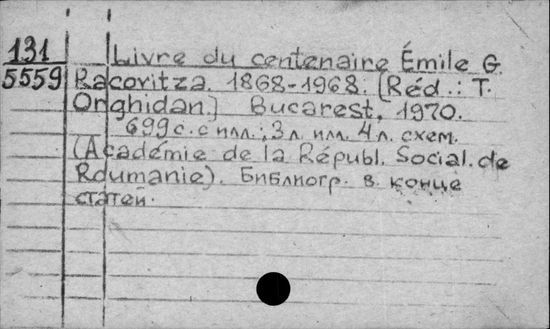 131 Livre du centenaire Émile G.
5559 Racovitza. 1868-1968. [Réd.: T.
Orighidan.] Bucarest, 1970.
699 с. с илл.; 3 л. илл. 4 л. схем.
(Académie de la Républ. Social. de
Roumanie). Библиогр. в конце
статей.